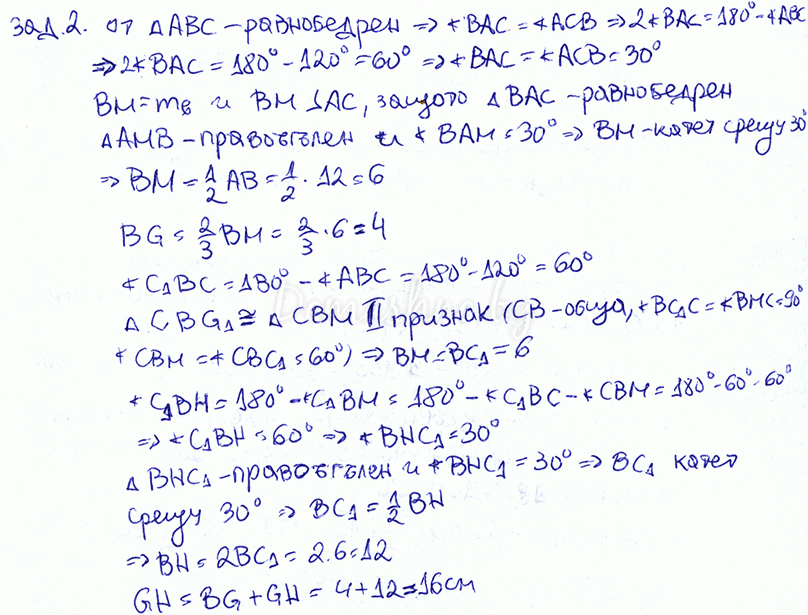 зад.2. От △ABC – равнобедрен ⇒ ∢BAC = ∢ACB ⇒ 2∢BAC = 180° - ∢ABC
⇒ 2∢BAC = 180° - 120° = 60° ⇒ ∢BAC = ∢ACB = 30°
BM = m_b и BM ⊥ AC, защото △BAC – равнобедрен
△AMB – правоъгълен и ∢BAM = 30° ⇒ BM – катет срещу 30°
⇒ BM = 1/2 AB = 1/2 . 12 = 6
BG = 2/3 BM = 2/3 . 6 = 4
∢C₁BC = 180° - ∢ABC = 180° - 120° = 60°
△CBG₁ ≅ △CBM II признак (CB – обща, ∢BC₁C = ∢BMC = 90°
∢CBM = ∢CBC₁ = 60°) ⇒ BM = BC₁ = 6
∢C₁BH = 180° - ∢C₁BM = 180° - ∢C₁BC - ∢CBM = 180° - 60° - 60°
⇒ ∢C₁BH = 60° ⇒ ∢BHC₁ = 30°
△BHC₁ – правоъгълен и ∢BHC₁ = 30° ⇒ BC₁ катет
срещу 30° ⇒ BC₁ = 1/2 BH
⇒ BH = 2BC₁ = 2.6 = 12
GH = BG + GH = 4 + 12 = 16 см